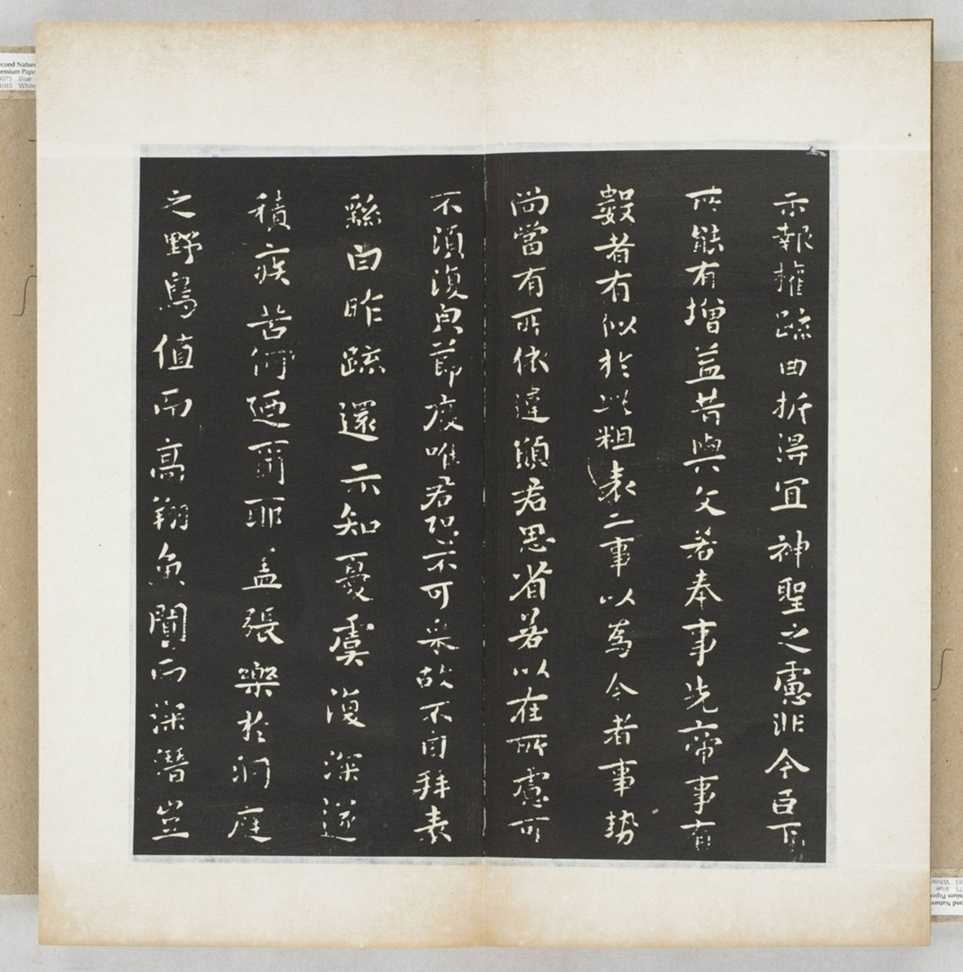 示報權疏曲折得宜神聖之慮非今臣下
所能有增益昔與文若奉事先帝事有
數者有似於此粗表二事以為今者事勢
尚當有所依違願君思省若以在所慮可
不須復皃節度唯君恐不可采故不自拜表
繇白昨疏還示知憂虞復深遂
積疾苦何迺爾耶盖張樂於洞庭
之野鳥值而高翔魚聞而深潛豈